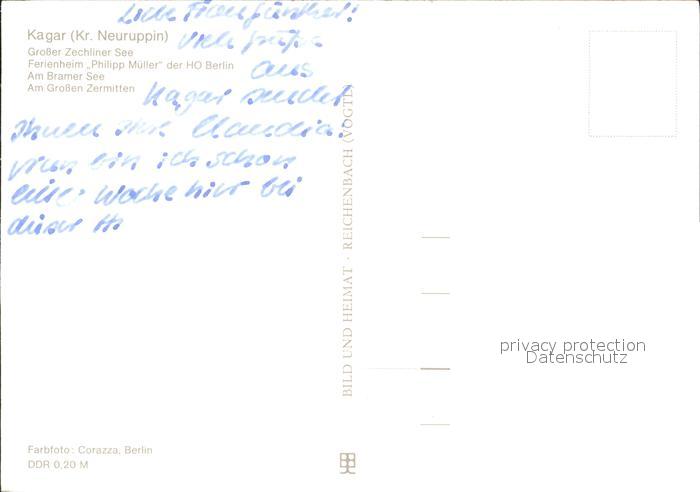 Liebe Frau Günther!
Kagar (Kr. Neuruppin)
Viele Grüße
Großer Zechliner See
Ferienheim „Philipp Müller" der HO Berlin
aus
Am Bramer See
Am Großen Zermitten
Kagar sendet
Ihnen Ihre Claudia.
Nun bin ich schon
eine Woche hier bei
dieser
BILD UND HEIMAT · REICHENBACH (VOGTL
privacy protection
Datenschutz
Farbfoto: Corazza, Berlin
DDR 0,20 M